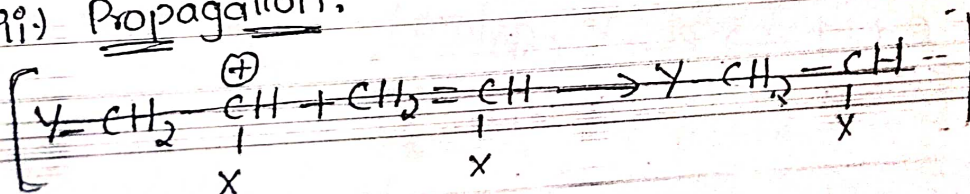 ii.) Propagation.
⊕
[ Y-CH2-CH + CH2=CH ⟶ Y-CH2-CH--
X X X